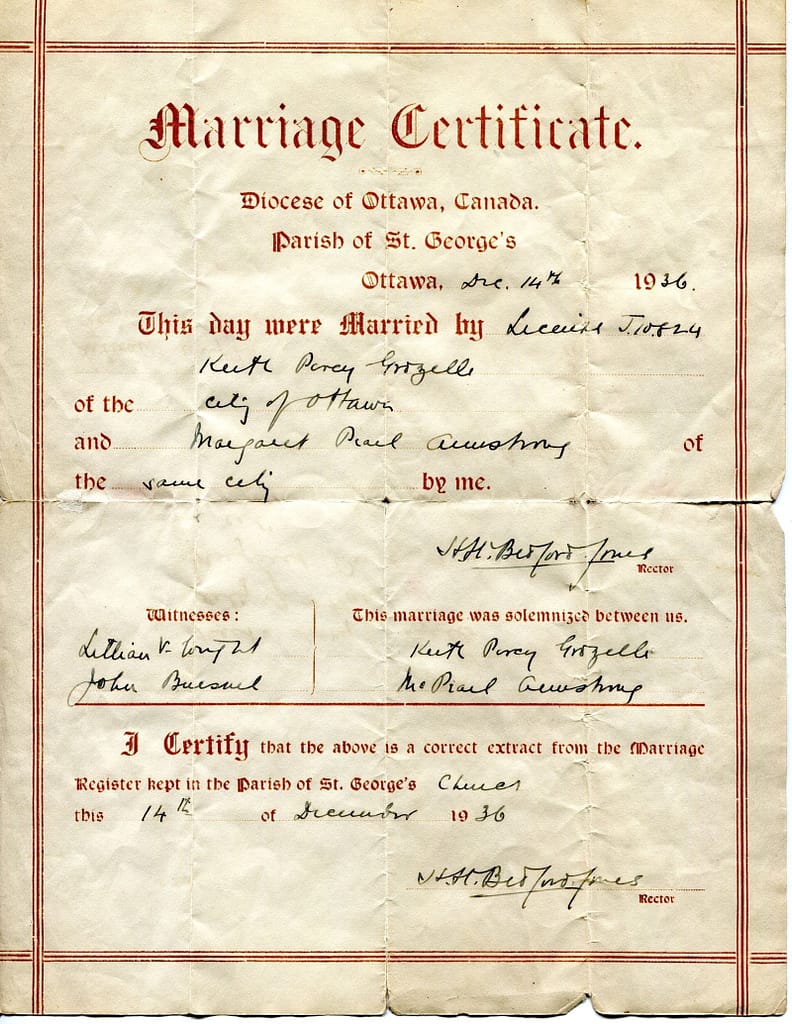 Marriage Certificate.
Diocese of Ottawa, Canada.
Parish of St. George's
Ottawa, Dec. 14th 1936.
This day were Married by License J.10.824
Keith Percy Grozelle
of the city of Ottawa
and Margaret Pearl Armstrong of
the same city by me.
H.H. Bedford-Jones
Rector
Witnesses:
Lillian V. Wright
John
This marriage was solemnized between us.
Keith Percy Grozelle
M. Pearl Armstrong
I Certify that the above is a correct extract from the Marriage
Register kept in the Parish of St. George's Church
this 14th of December 1936
H.H. Bedford-Jones
Rector